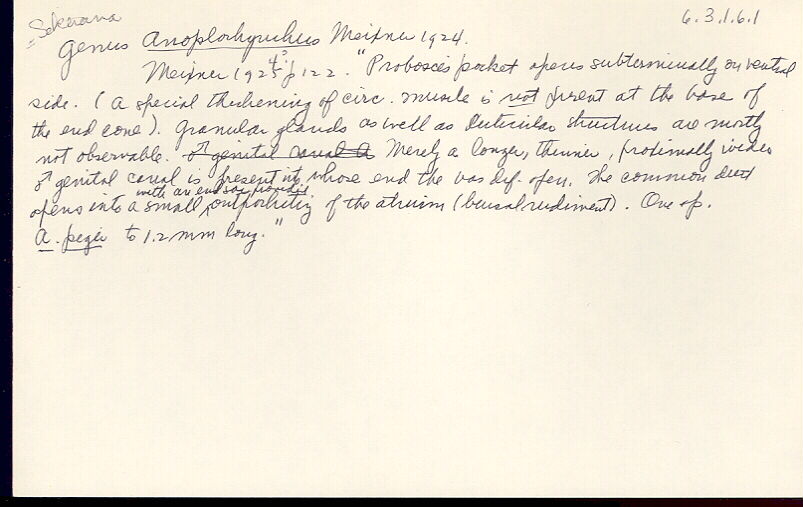 = Sekerana
6.3.1.6.1
Genus Anoplorhynchus Meixner 1924.
Meixner 1925 p 122. "Proboscis pocket opens subterminally on ventral
side. (A special thickening of circ. muscle is not present at the base of
the end cone). Granular glands as well as cuticular structures are mostly
not observable. ♂ genital canal a Merely a longer, thinner, proximally wider
♂ genital canal is present into whose end the vas def. open. The common duct
opens into a small with an end sac provided outpocketing of the atrium (bursal rudiment). One sp.
A. piger to 1.2 mm long."